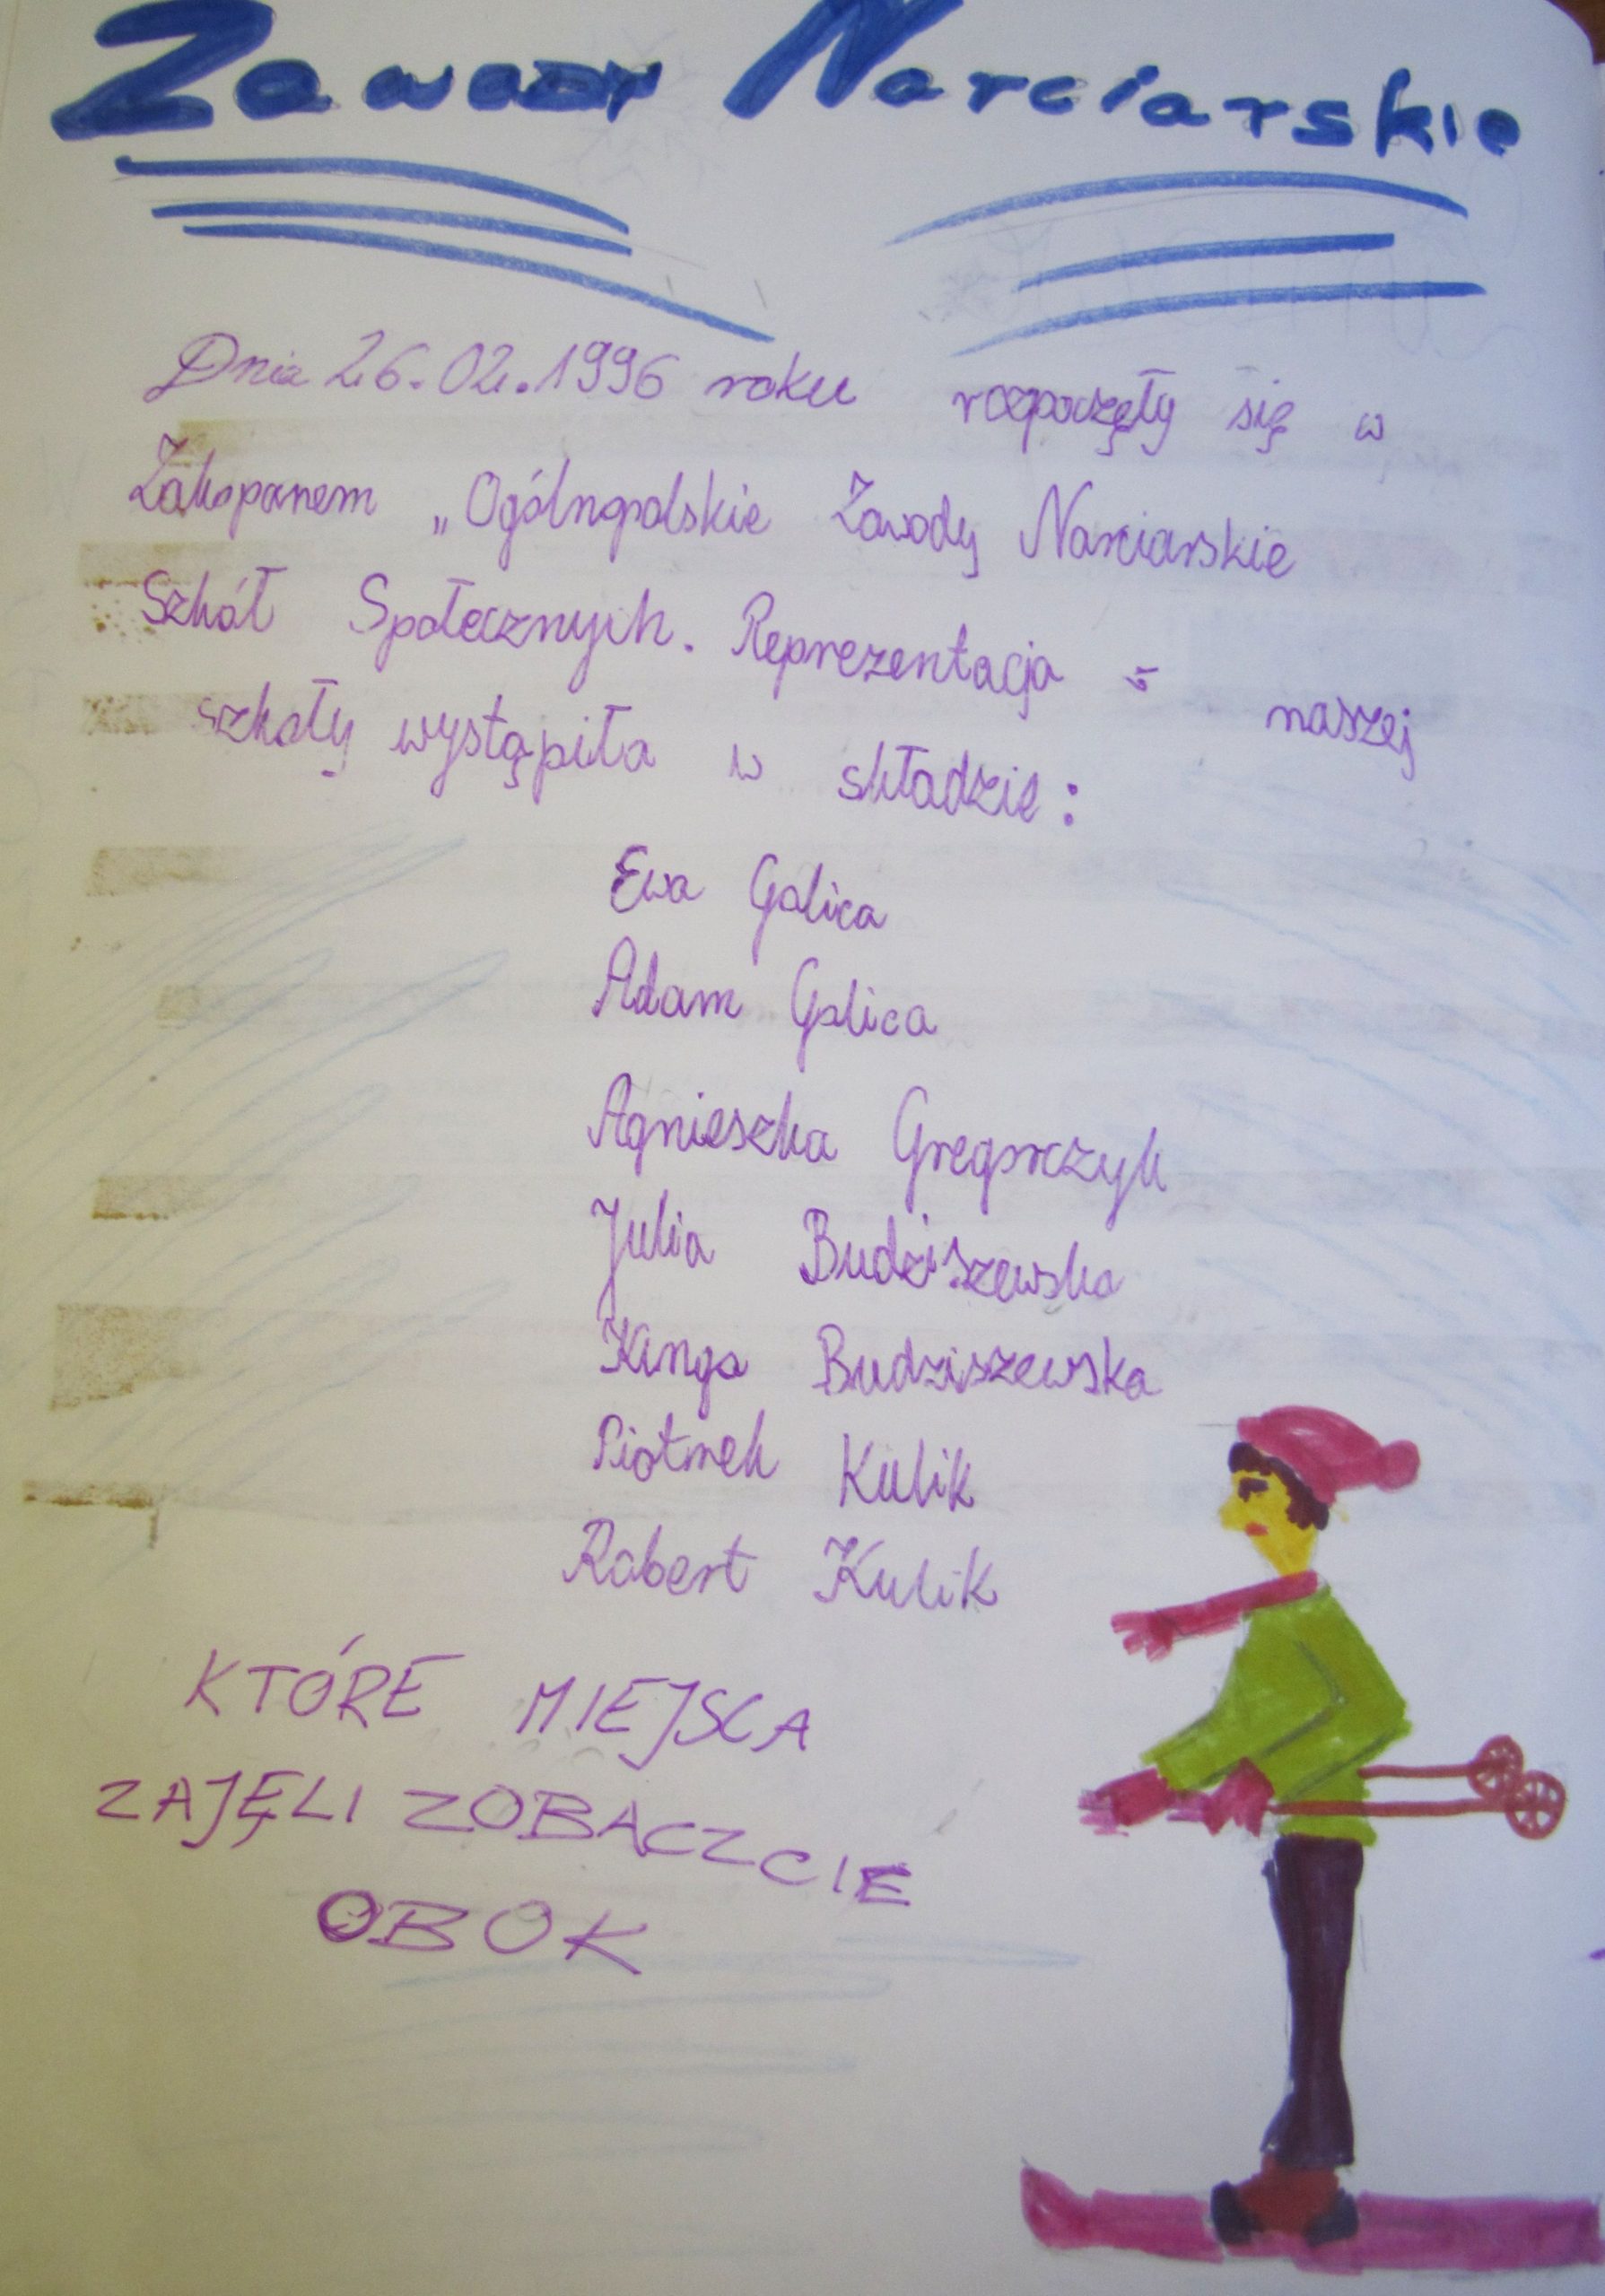 Zawody Narciarskie
Dnia 26.02.1996 roku rozpoczęły się w
Zakopanem „Ogólnopolskie Zawody Narciarskie
Szkół Społecznych. Reprezentacja naszej
szkoły wystąpiła w składzie:
Ewa Galica
Adam Galica
Agnieszka Gregorczyk
Julia Budziszewska
Kinga Budziszewska
Piotrek Kulik
Robert Kulik
KTÓRE MIEJSCA
ZAJĘLI ZOBACZCIE
OBOK